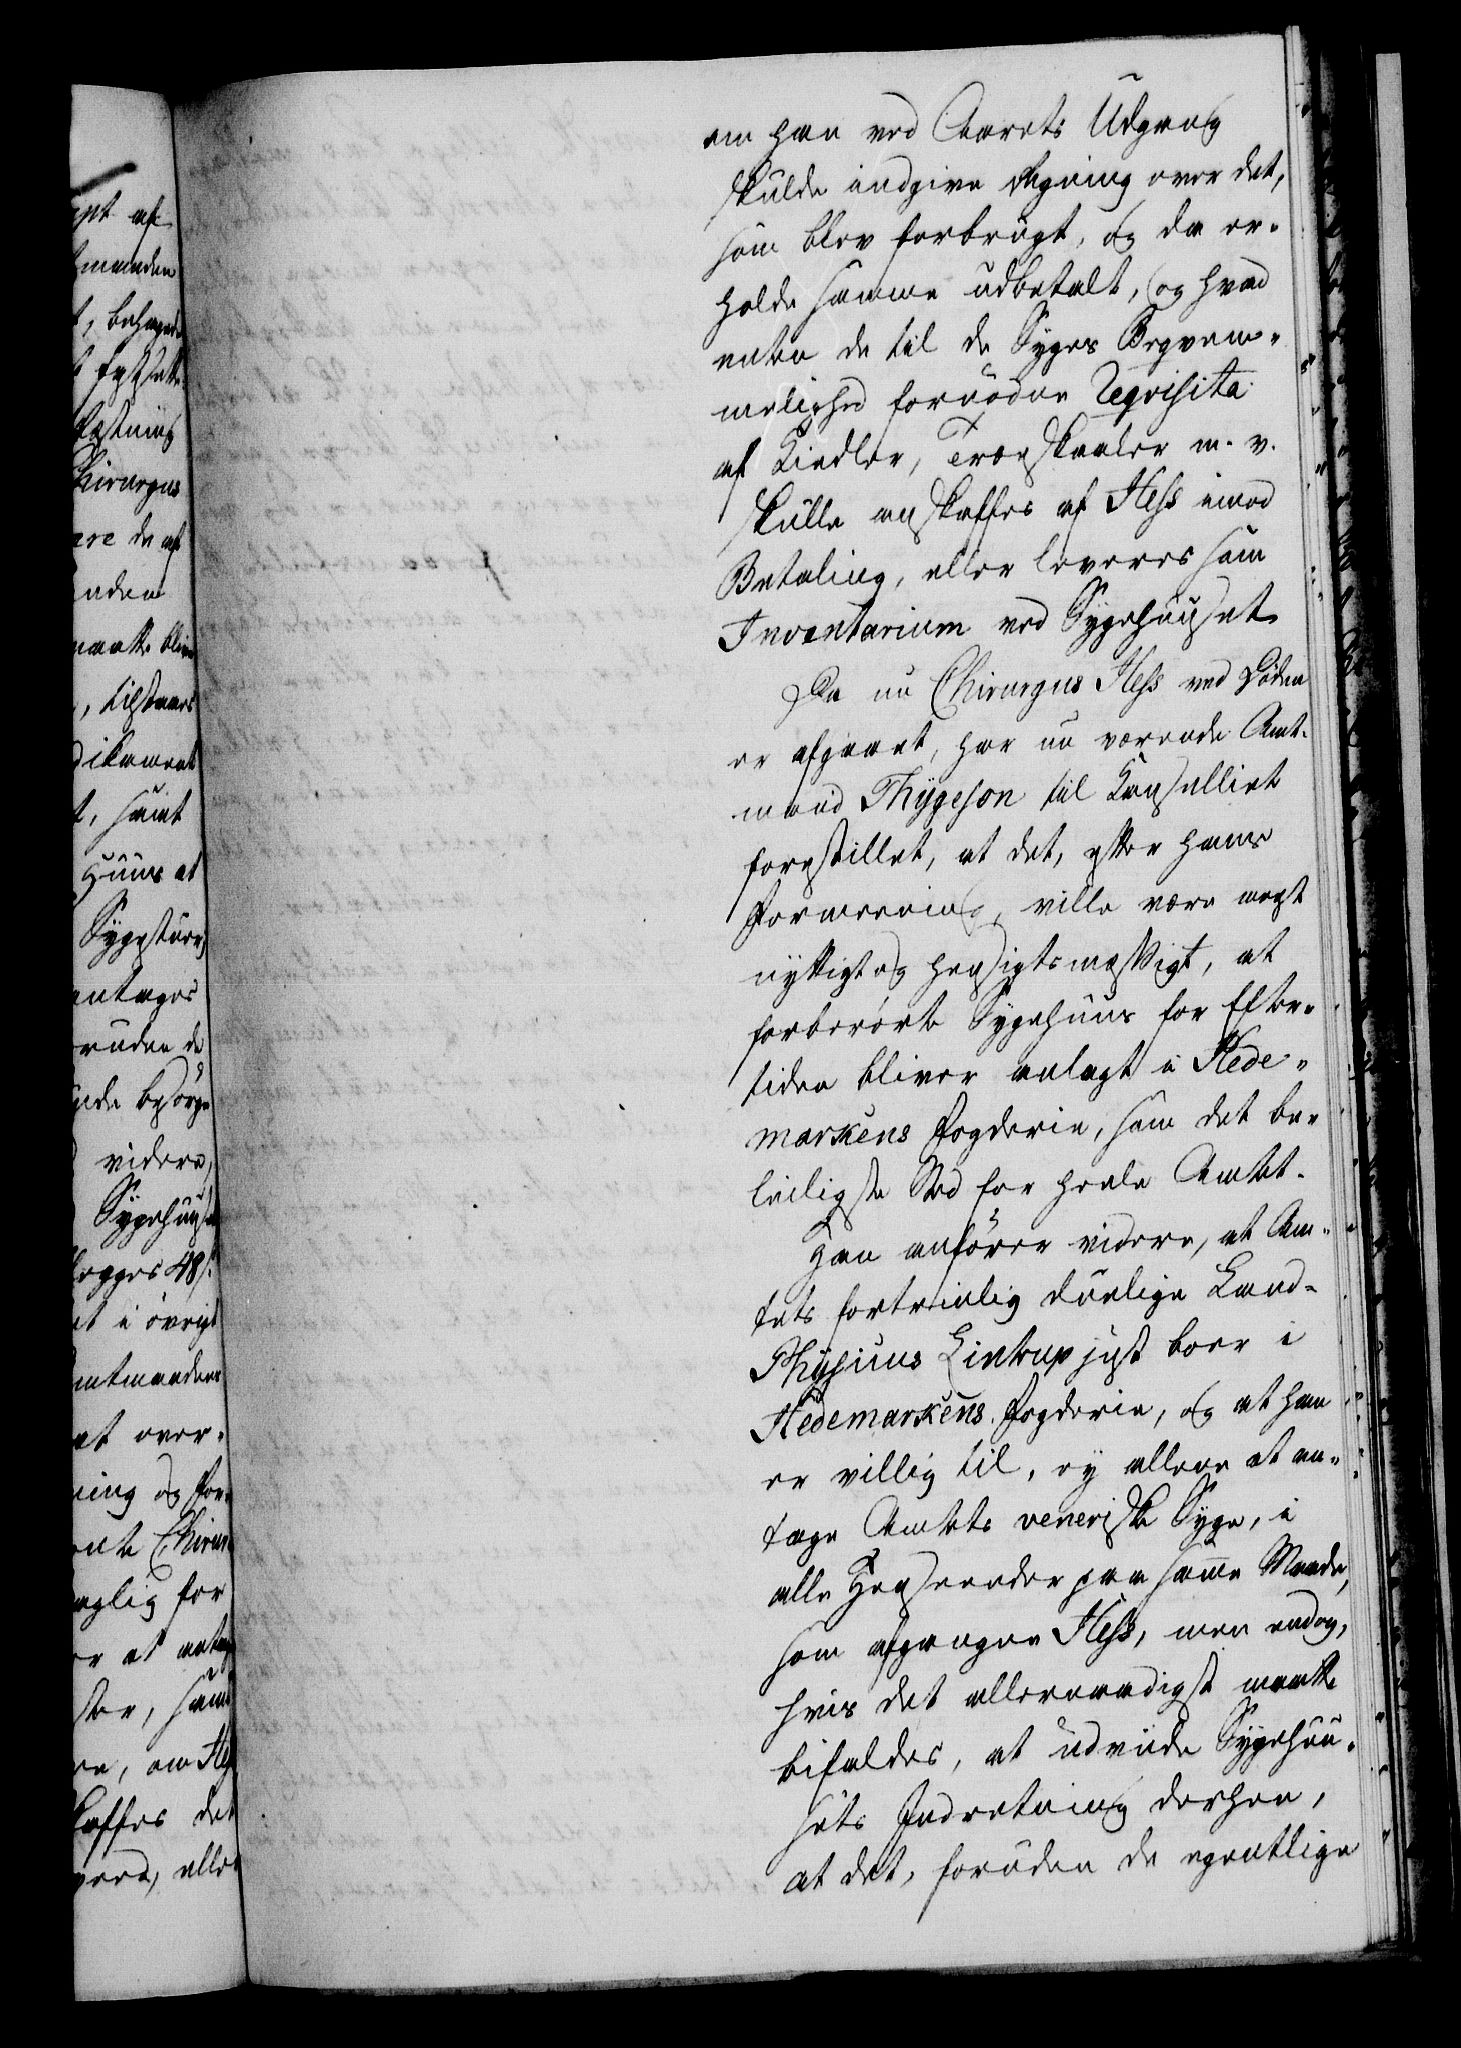 om han ved Aarets Udgang
skulde indgive Regning over det,
som blev forbrugt, og da er-
holde samme udbetalt, og hvad
enten de til de Syges Beqvem-
melighed fornødne Reqvisita
af Kiedler, Træeskaaler m. v.
skulle anskaffes af Hess imod
Betaling, eller leveres som
Inventarium ved Sygehuuset
Da nu Chirurgus Hess ved Døden
er afgaaet, har nu værende Amt-
mand Thygeson til Kanselliet
forestillet, at det, efter hans
Formeening, ville være meget
nyttigt og hensigtsmæssigt, at
forberørte Sygehuus for Efter-
tiden bliver anlagt i Hede-
markens Fogderie, som det be-
leiligste Sted for heele Amtet.
Han anfører videre, at Am-
tets fortrinlig duelige Land-
Physicus Lintrup just boer i
Hedemarkens Fogderie, og at han
er villig til, ey alleene at an-
tage Amtets veneriske Syge, i
alle Henseender paa samme Maade,
som afgangne Hess, men endog,
hvis det allernaadigst maatte
bifaldes, at udviide Sygehuu-
sets Indretning derhen,
at det, foruden de egentlige